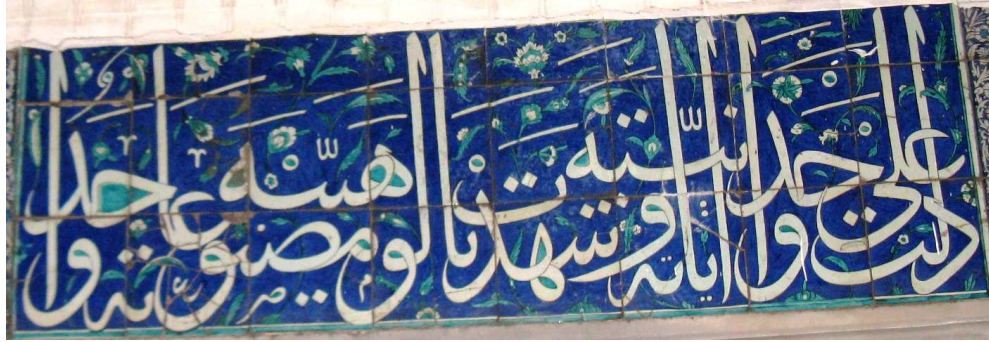 دلت على وحدانيته آياته وشهدت بالوهيته مصنوعاته واحد